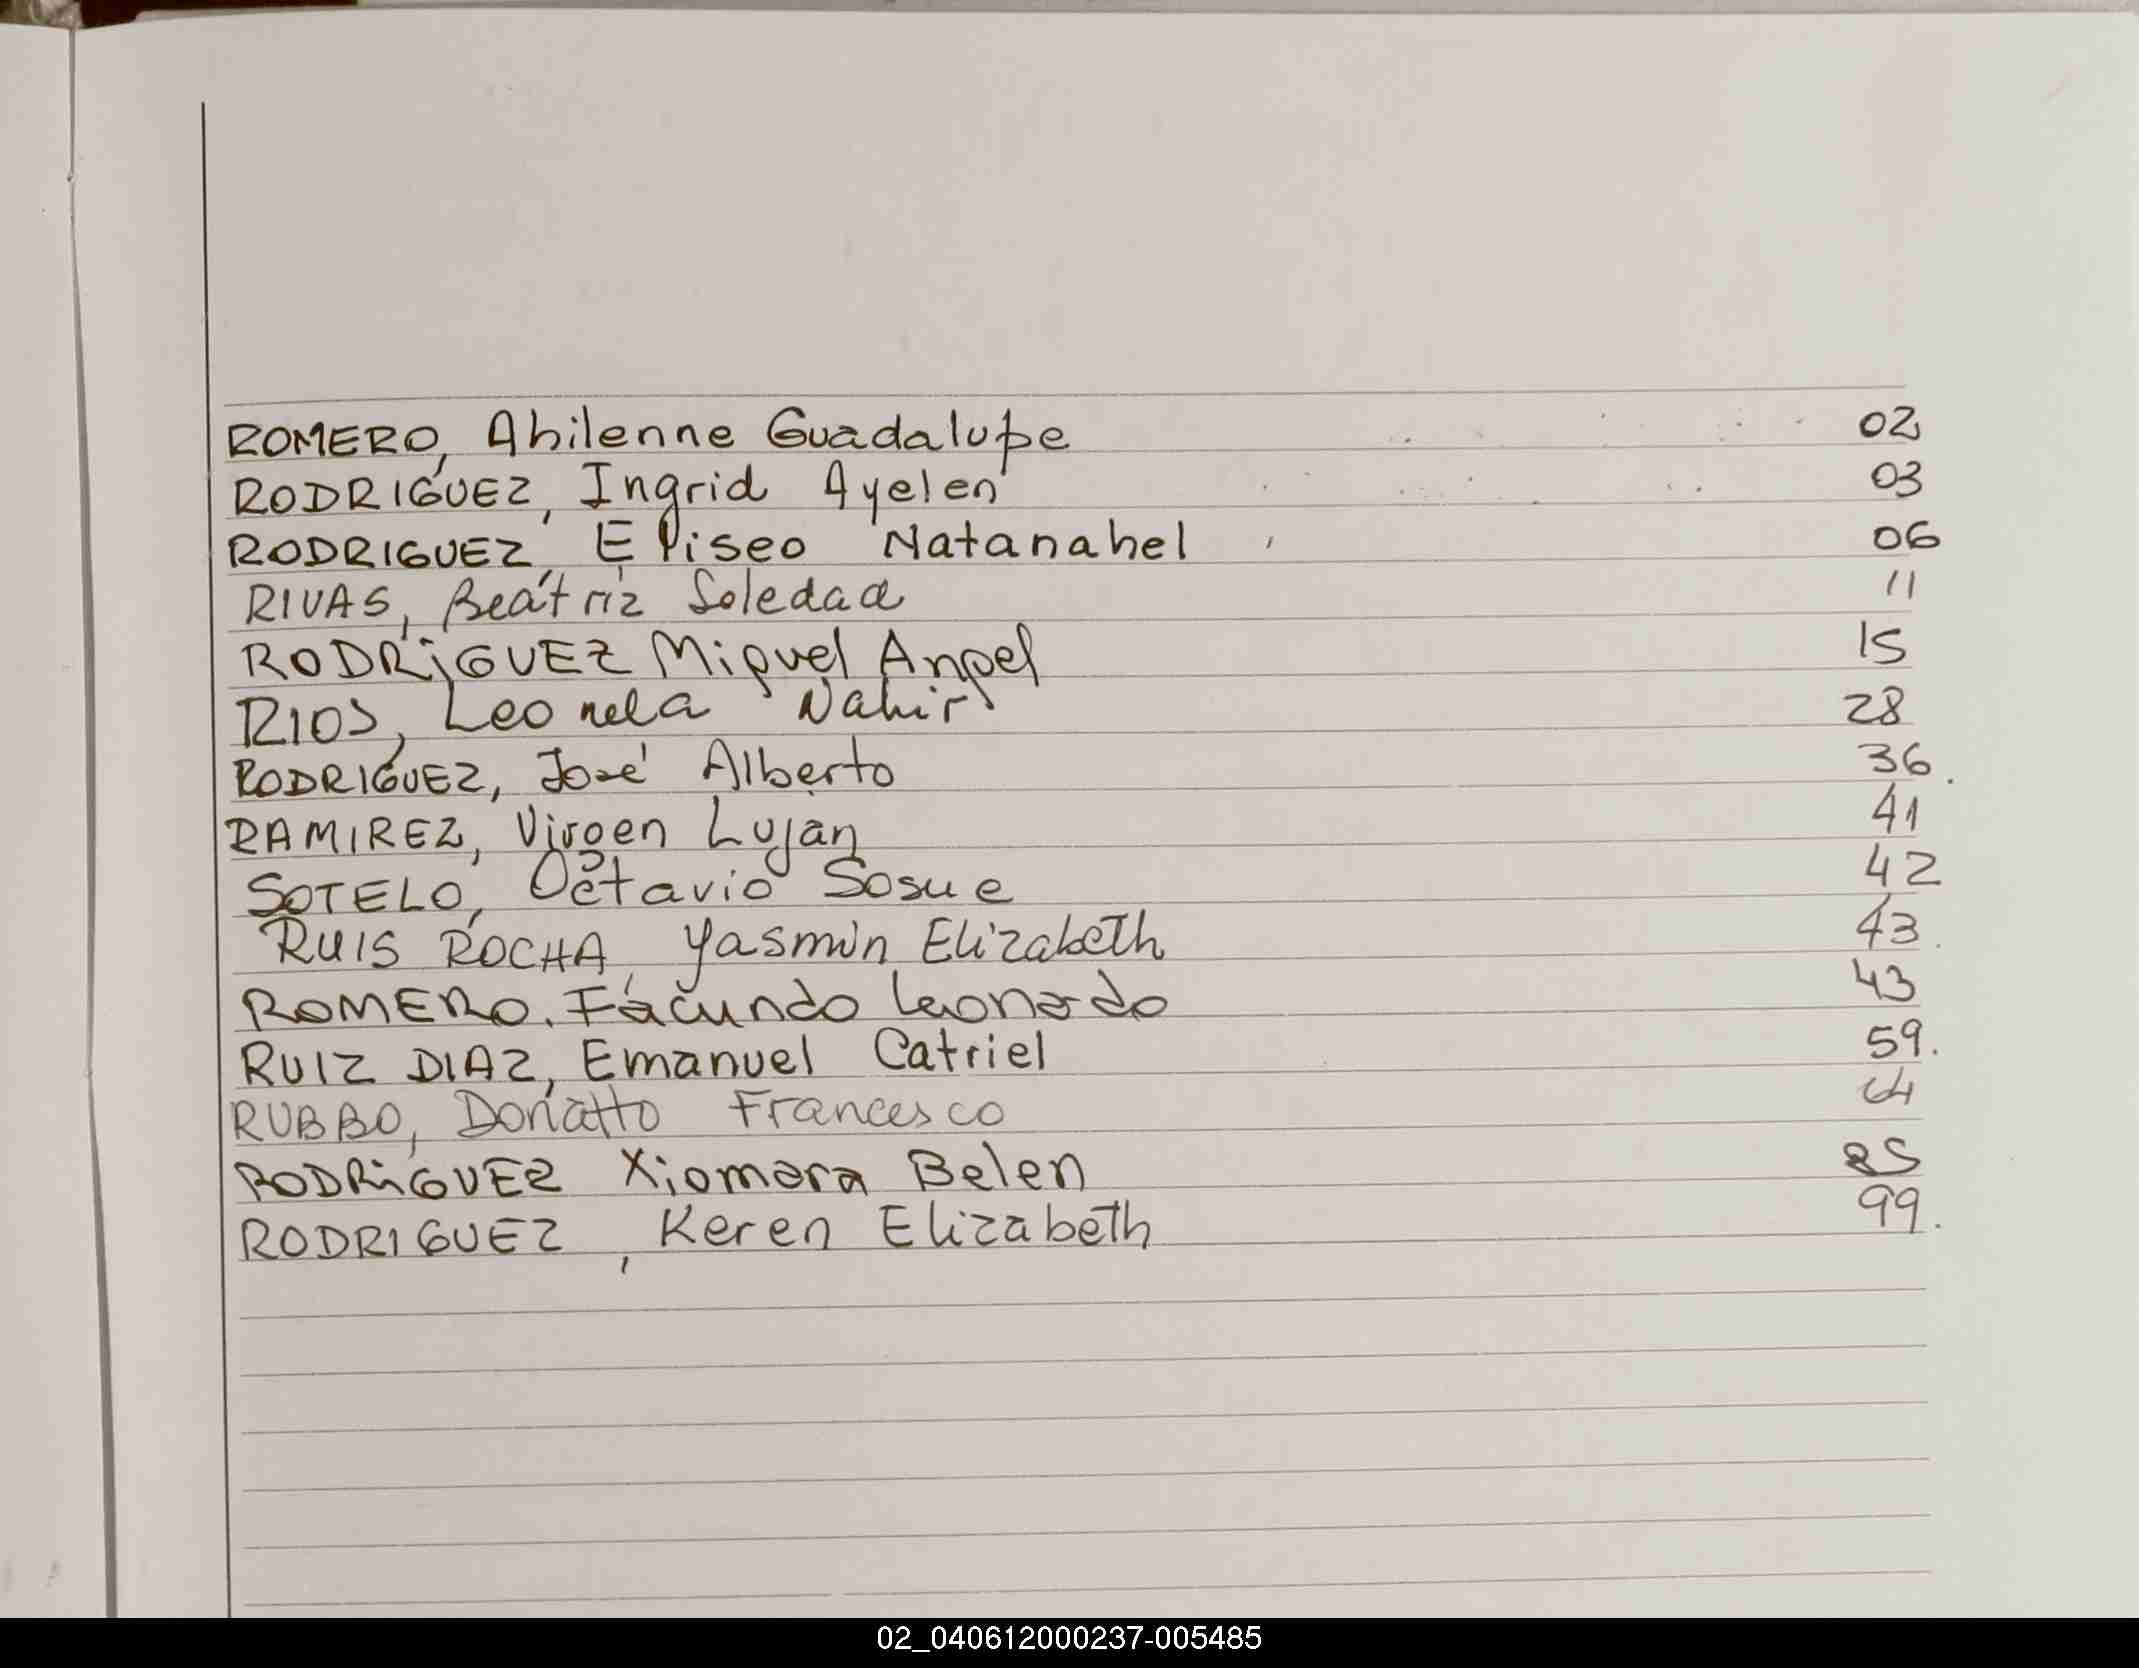 ROMERO, Ahilenne Guadalupe 02
RODRIGUEZ, Ingrid Ayelen 03
RODRIGUEZ, Eliseo Natanahel 06
RIVAS, Beatriz Soledad 11
RODRiGUEZ Miguel Angel 15
RIOS, Leonela Nahir 28
RODRIGUEZ, José Alberto 36.
RAMIREZ, Virgen Lujan 41
SOTELO, Octavio Sosue 42
RUIS ROCHA, Yasmin Elizabeth 43.
ROMERO. Facundo Leonardo 43
RUIZ DIAZ, Emanuel Catriel 59.
RUBBO, Donatto Francesco 64
RODRiGUEZ Xiomara Belen 85
RODRIGUEZ, Keren Elizabeth 99.
02_040612000237-005485